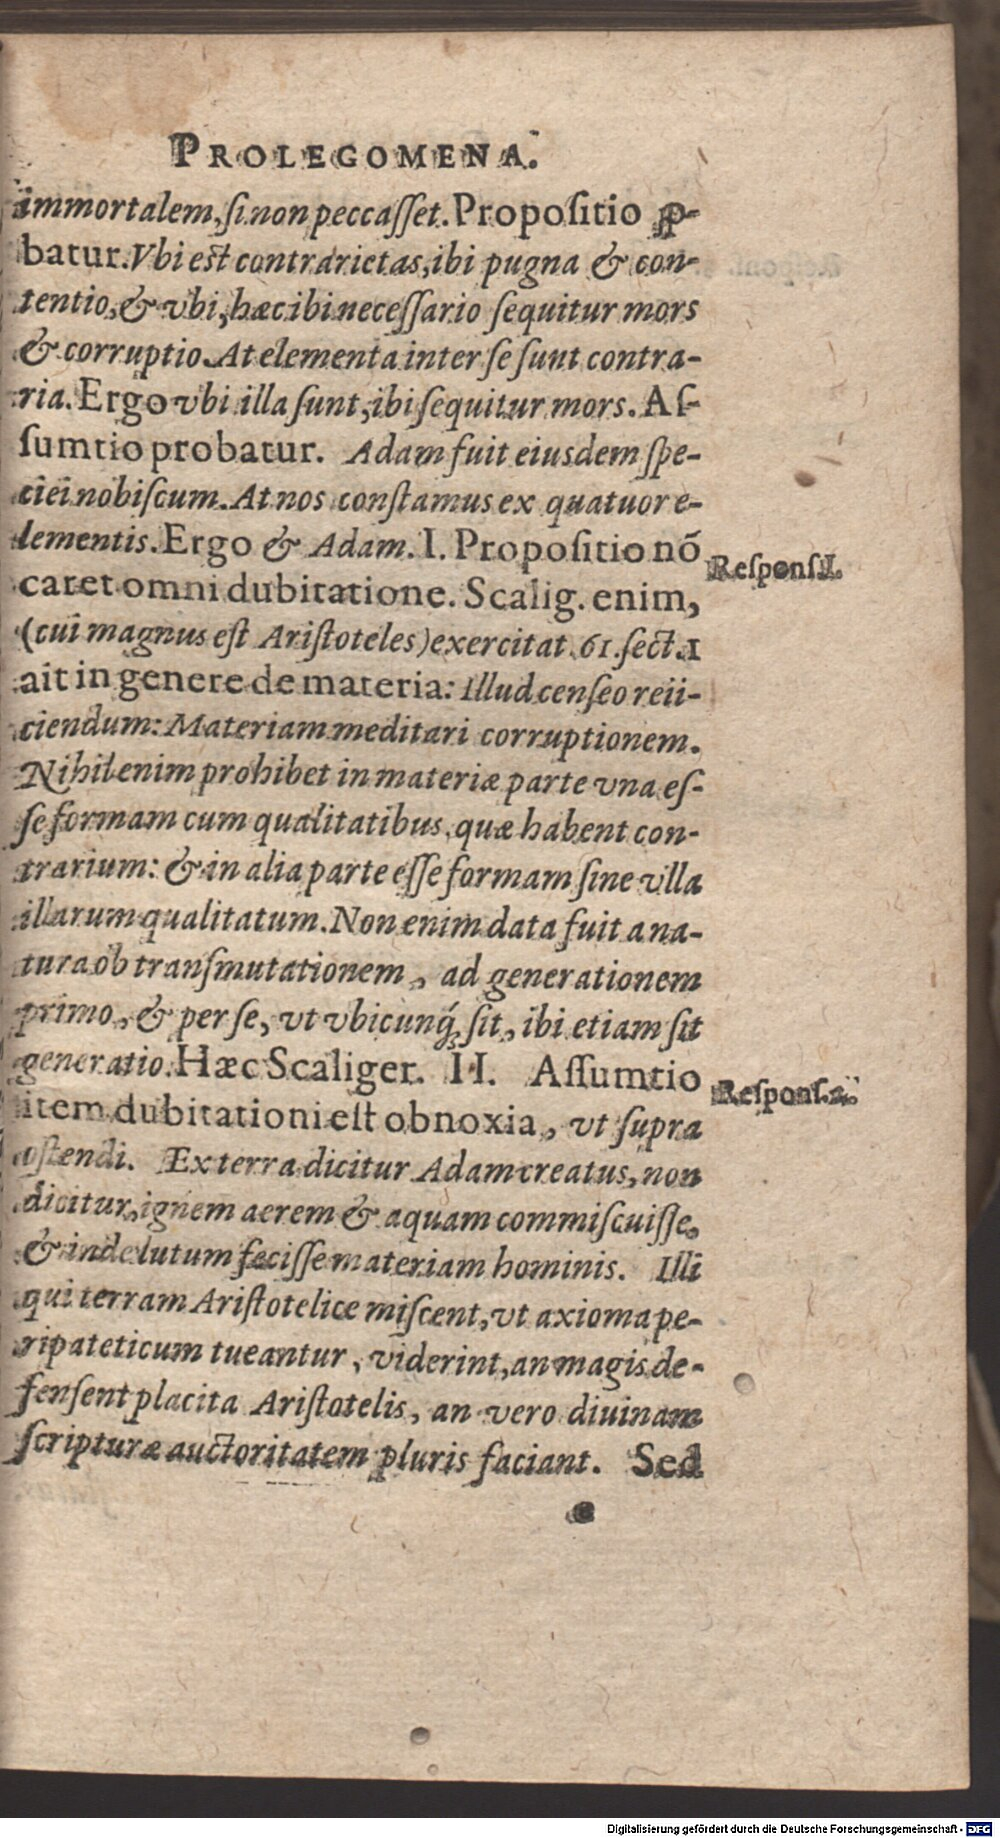 PROLEGOMENA.
immortalem, ſi non peccaſſet. Propoſitio ꝓ-
batur. Vbi eſt contrarietas, ibi pugna & con-
tentio, & vbi, hæc ibi neceſſario ſequitur mors
& corruptio. At elementa inter ſe ſunt contra-
ria. Ergo vbi illa ſunt, ibi ſequitur mors. Aſ-
ſumtio probatur. Adam fuit eiusdem ſpe-
ciei nobiſcum. At nos conſtamus ex quatuor e-
lementis. Ergo & Adam. I. Propoſitio nõ
Reſponſ.I.
caret omni dubitatione. Scalig. enim,
(cui magnus eſt Ariſtoteles) exercitat. 61. ſect. 1
ait in genere de materia: Illud cenſeo reii-
ciendum: Materiam meditari corruptionem.
Nihil enim prohibet in materiæ parte vna eſ-
ſe formam cum qualitatibus, quæ habent con-
trarium: & in alia parte eſſe formam ſine vlla
illarum qualitatum. Non enim data fuit a na-
tura ob tranſmutationem, ad generationem
primo, & per ſe, vt vbicunq́; ſit, ibi etiam ſit
generatio. Hæc Scaliger. II. Aſſumtio
Reſponſ.2.
item dubitationi eſt obnoxia, vt ſupra
oſtendi. Ex terra dicitur Adam creatus, non
dicitur, ignem aerem & aquam commiſcuiſſe,
& inde lutum feciſſe materiam hominis. Illi
qui terram Ariſtotelice miſcent, vt axioma pe-
ripateticum tueantur, viderint, an magis de-
fenſent placita Ariſtotelis, an vero diuinam
ſcripturæ auctoritatem pluris faciant. Sed
Digitalisierung gefördert durch die Deutsche Forschungsgemeinschaft - DFG